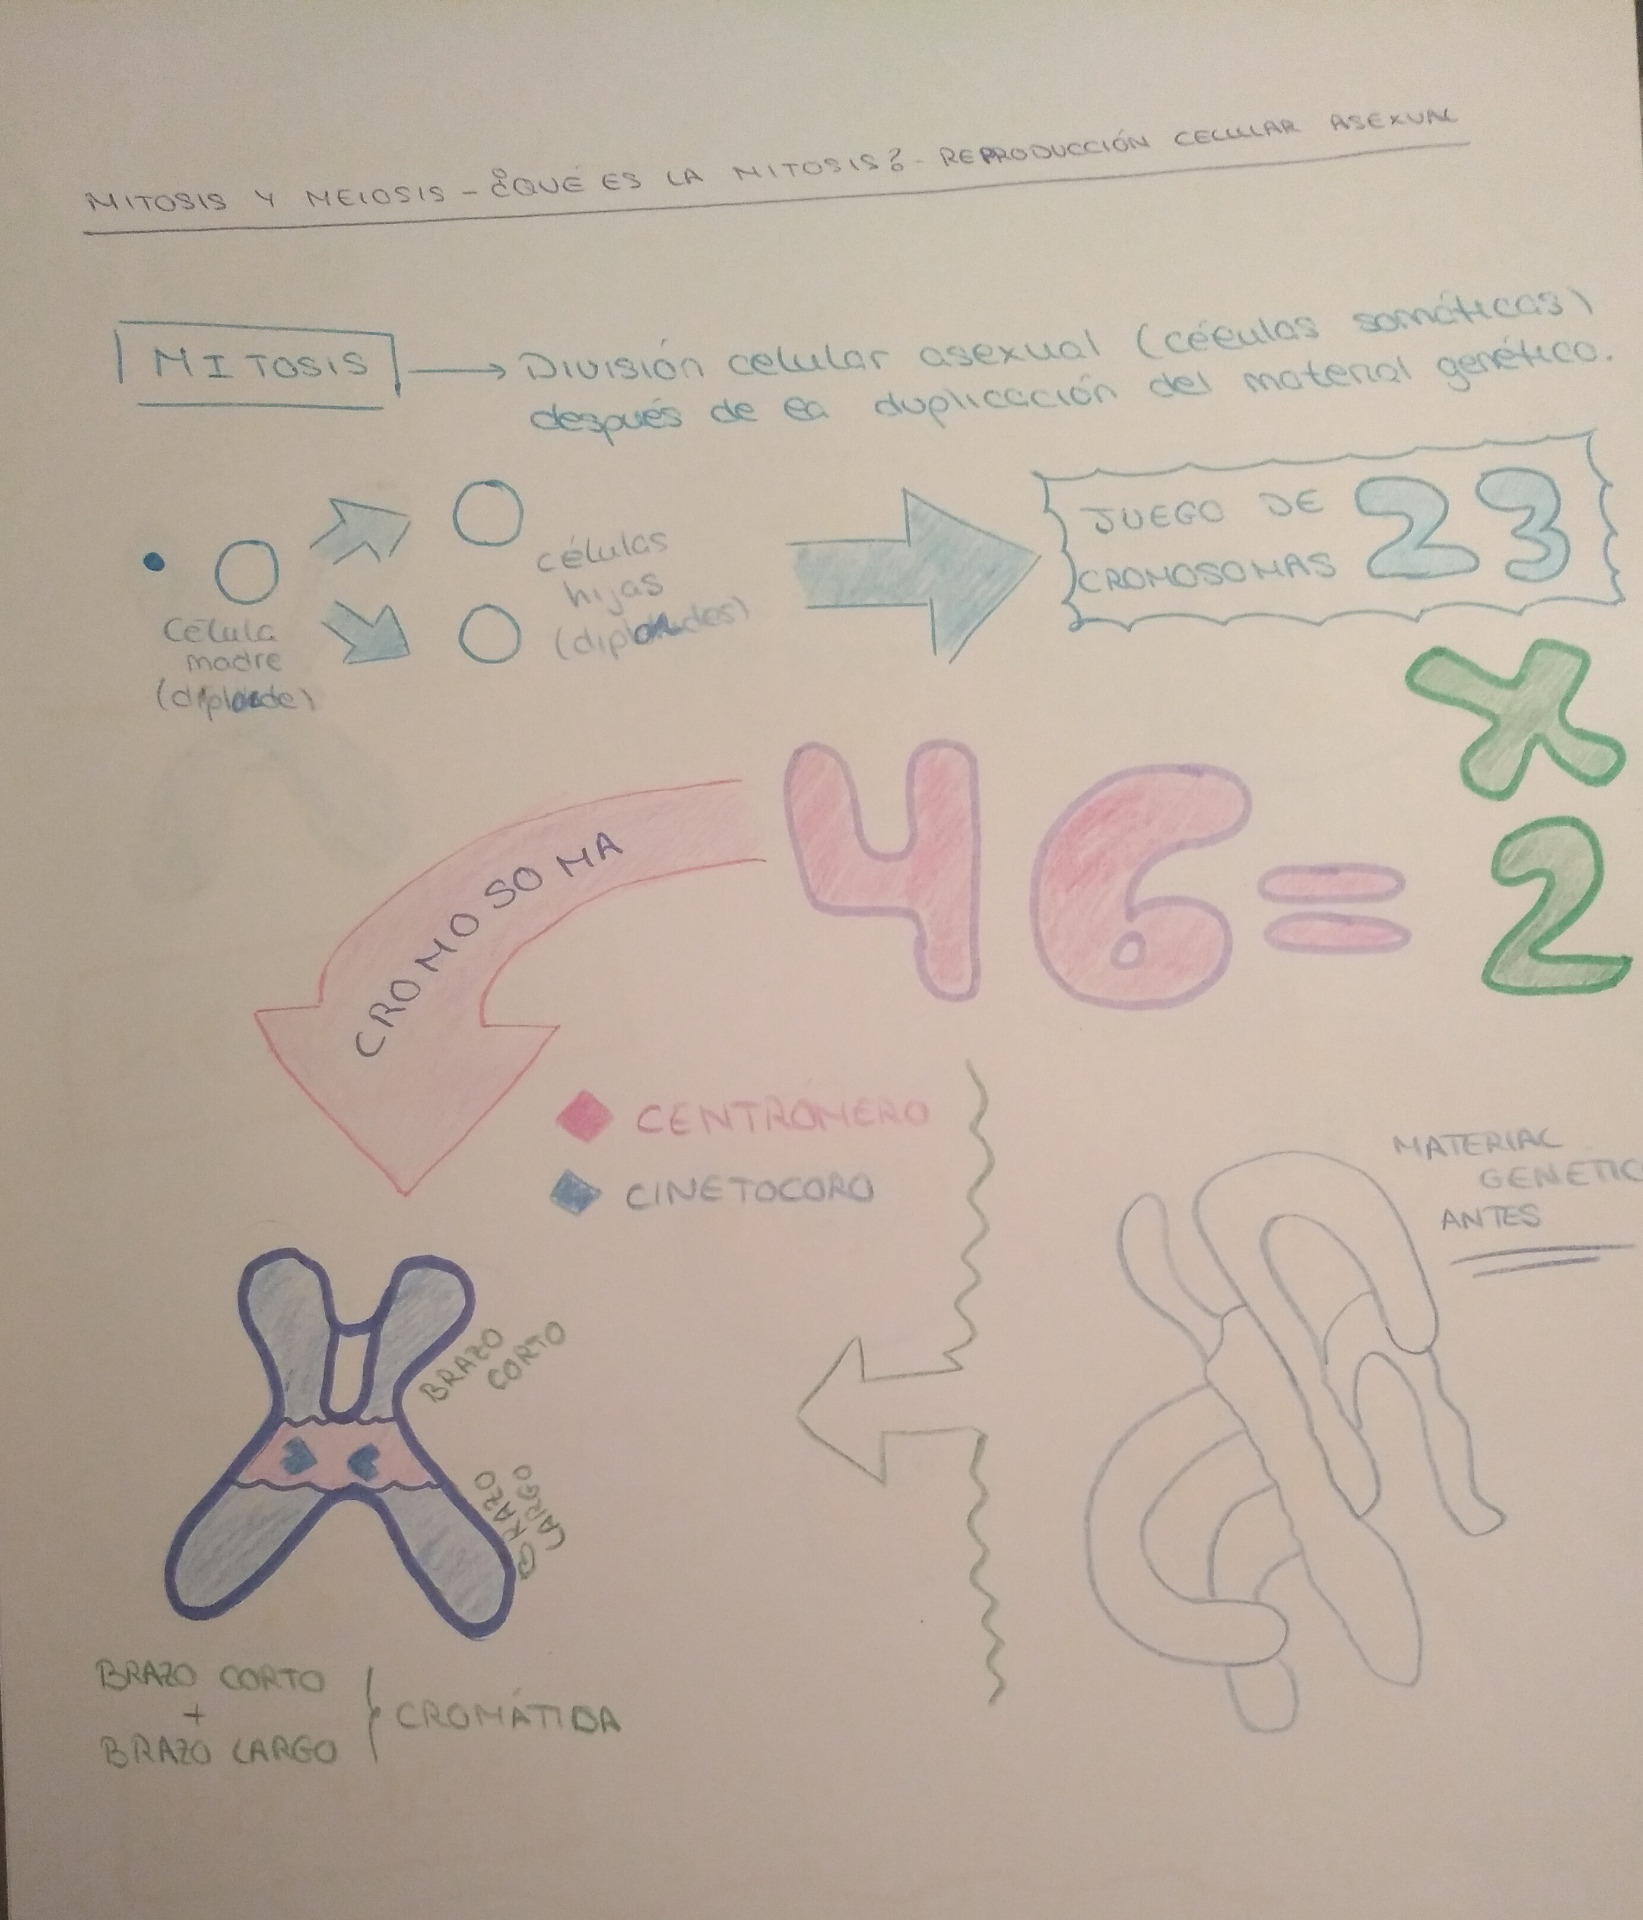 MITOSIS Y MEIOSIS - ¿QUÉ ES LA MITOSIS? - REPRODUCCIÓN CELULAR ASEXUAL
MITOSIS → División celular asexual (células somáticas)
después de la duplicación del material genético.
Célula
madre
(diploide)
células
hijas
(diploides)
JUEGO DE
CROMOSOMAS 23
x
2
46=
CROMOSOMA
CENTRÓMERO
CINETOCORO
MATERIAL
GENÉTIC
ANTES
BRAZO
CORTO
BRAZO
LARGO
BRAZO CORTO
+
BRAZO LARGO
CROMÁTIDA